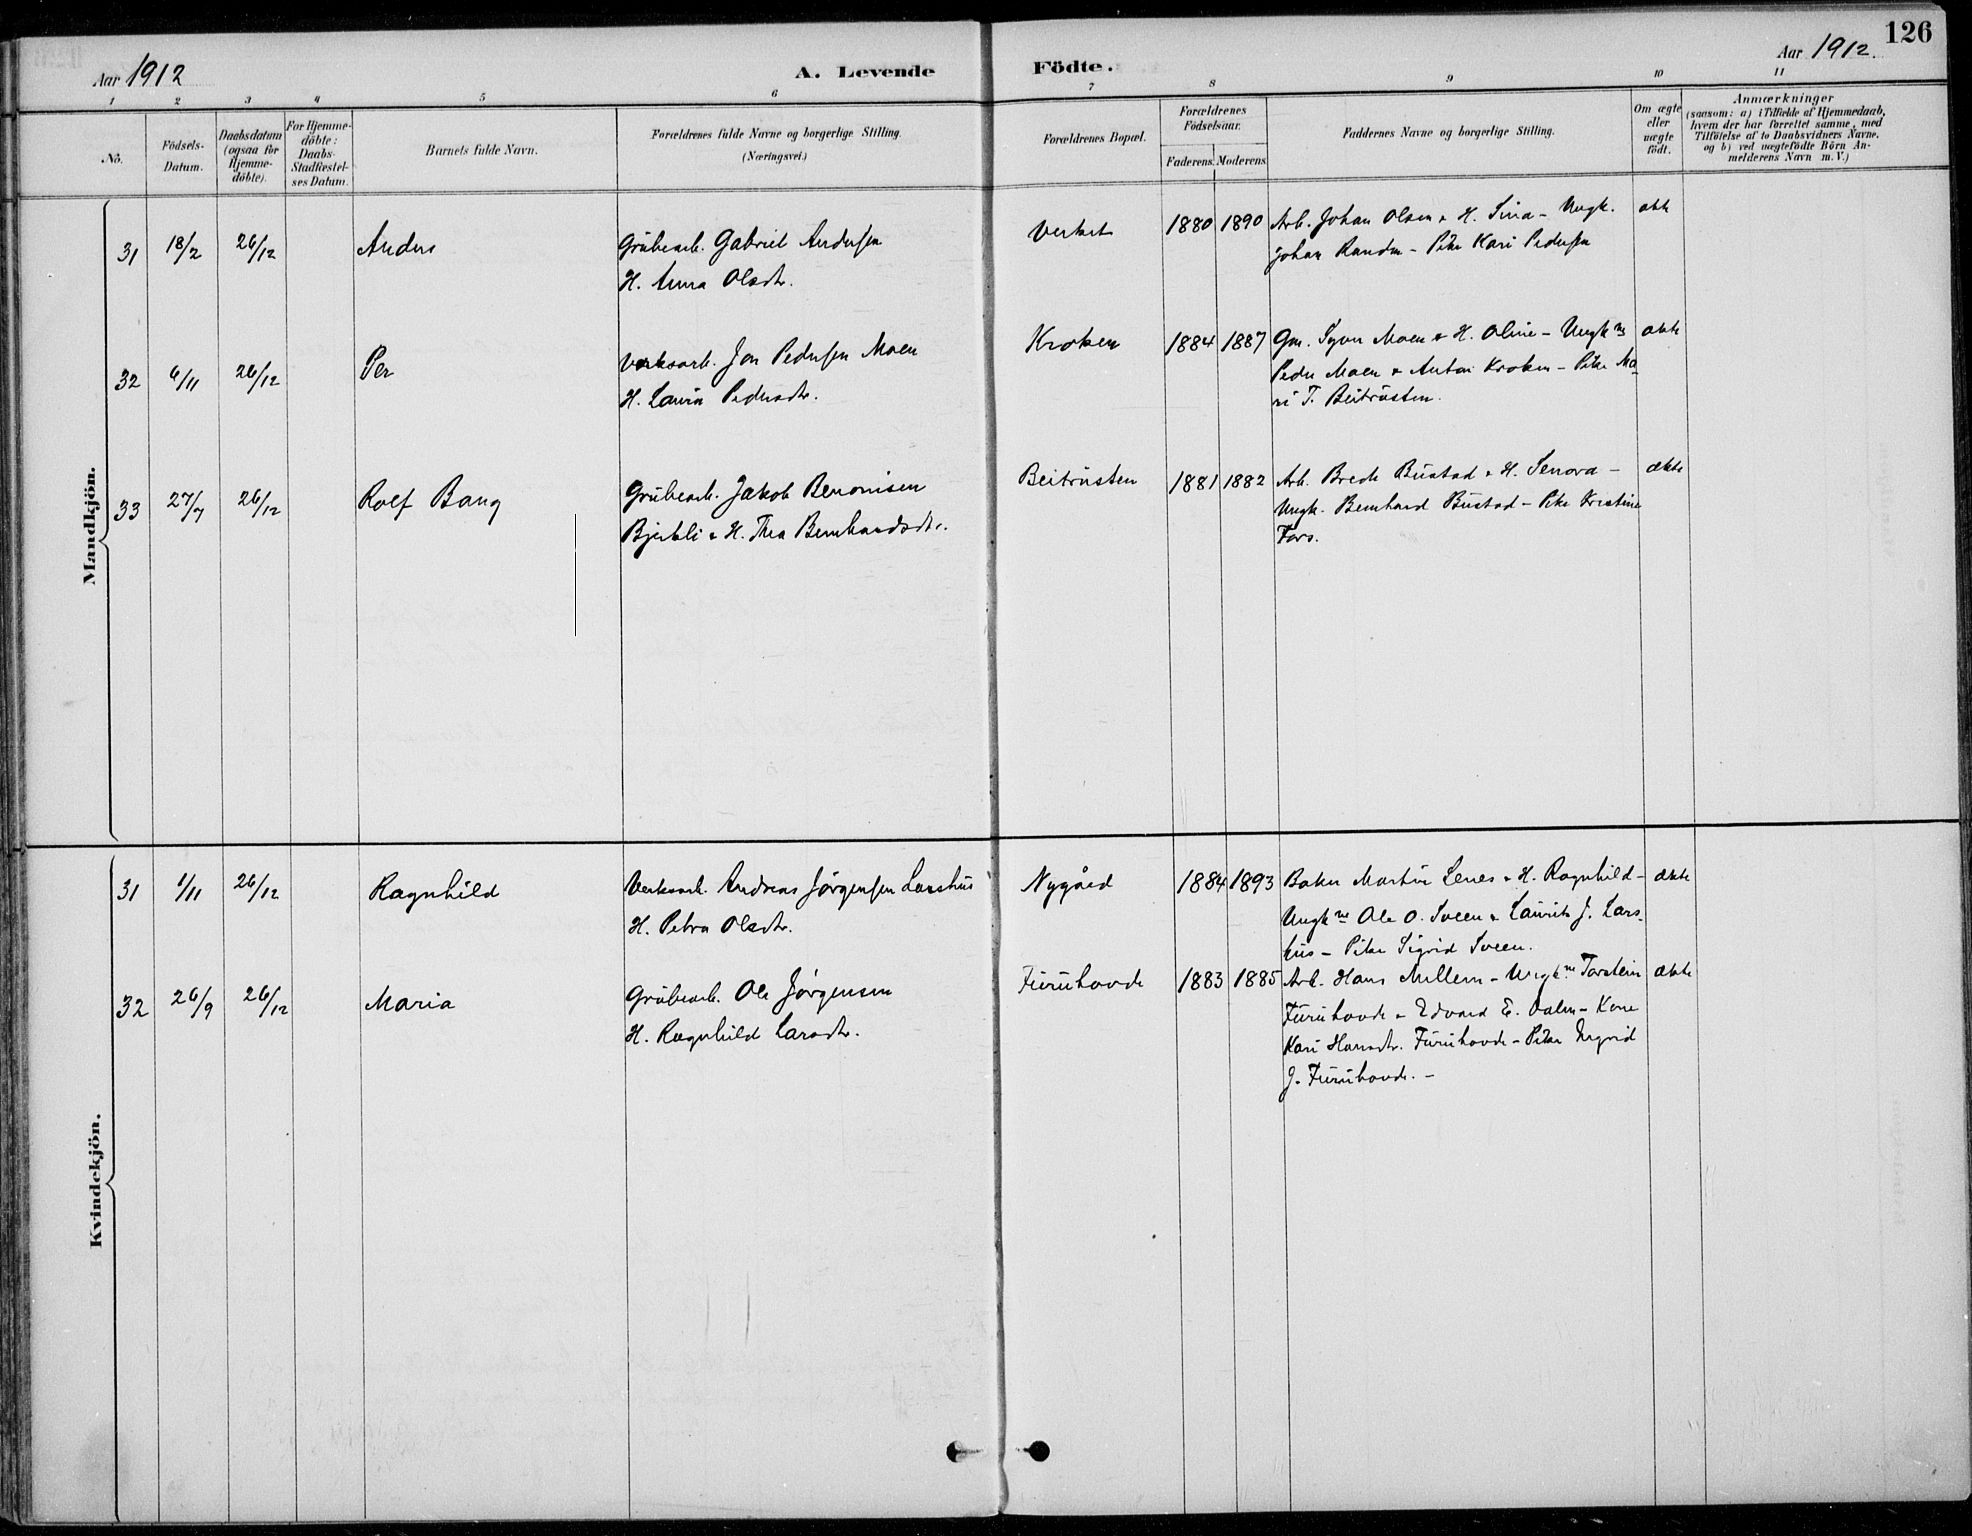 126
Aar 1912
A. Levende
Födte.
Aar 1912.
1 2 3 4 5 6 7 8 9 10 11
No.
Födsels-
Datum.
Daabsdatum
(ogsaa for
Hjemme-
döbte).
For Hjemme-
döbte:
Daabs-
Stadfæstel-
ses Datum.
Barnets fulde Navn.
Forældrenes fulde Navne og borgerlige Stilling.
(Næringsvei.)
Forældrenes Bopæl.
Forældrenes
Födselsaar.
Faderens. Moderens.
Faddernes Navne og borgerlige Stilling.
Om ægte
eller
uægte
födt.
Anmærkninger
(saasom: a) i Tilfælde af Hjemmedaab,
hvem der har forrettet samme, med
Tilföielse af to Daabsvidners Navne.
og b) ved uægtefödte Börn An-
melderens Navn m. V.)
Mandkjön.
31 18/2 26/12 Anders
Grubearb. Gabriel Andersen
H. Anna Olsdtr.
Verket 1880 1890
Arb. Johan Olsen & H. Sina - Ungk.
Johan Randen - Pike Kari Pedersen
ekte
32 6/11 26/12 Per
Verksarb. Jon Pedersen Moen
H. Laura Pedersdtr.
Kroken 1884 1887
Gm. Syver Moen & H. Oline - Ungkne
Peder Moen & Anton Kroken - Pike Ma-
ri T. Beitrusten.
ekte
33 27/7 26/12 Rolf Bang
Grubearb. Jakob Benonisen
Bjerkli & H. Thea Bernhardsdtr.
Beitrusten 1881 1882
Arb. Brede Bustad & H. Senora -
Ungk. Bernhard Bustad - Pike Kristine
Fors.
ekte
Kvindekjön.
31 1/11 26/12 Ragnhild
Verksarb. Andreas Jørgensen Larshus
H. Petra Olsdtr.
Nygård 1884 1893
Baker Martin Lenes & H. Ragnhild -
Ungkne Ole O. Sveen & Laurits J. Lars-
hus - Pike Sigrid Sveen.
ekte
32 26/9 26/12 Maria
Grubearb. Ole Jørgensen
H. Ragnhild Larsdtr.
Furuhovde 1883 1885
Arb. Hans Mellem - Ungkne Torstein
Furuhovde & Edvard E. Dalen - Kone
Kari Hansdtr. Furuhovde - Pike Ingrid
J. Furuhovde. -
ekte